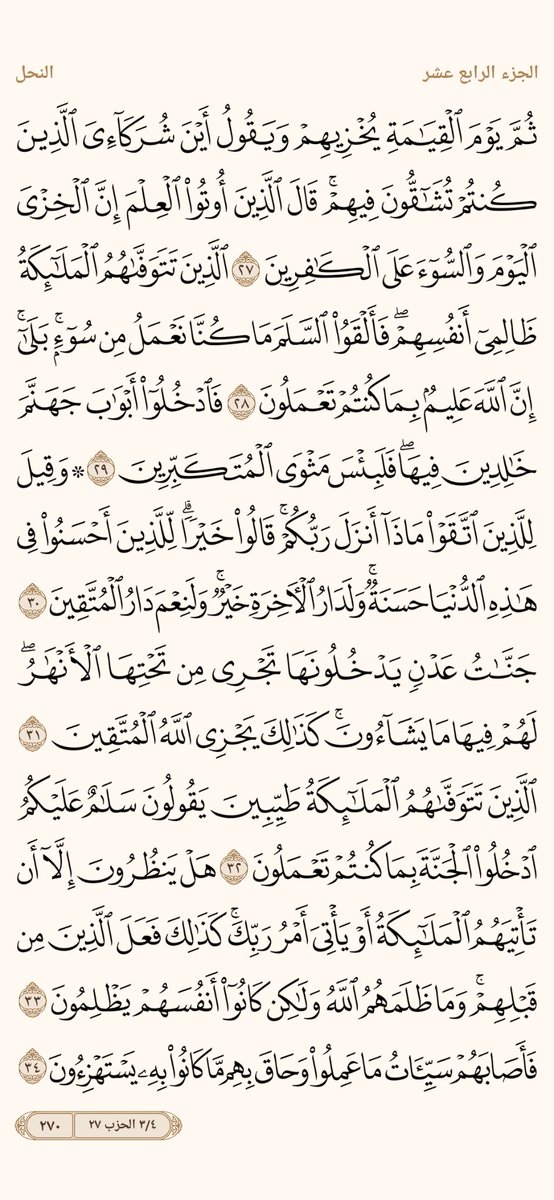 الجزء الرابع عشر
النحل
ثُمَّ يَوْمَ ٱلْقِيَٰمَةِ يُخْزِيهِمْ وَيَقُولُ أَيْنَ شُرَكَآءِىَ ٱلَّذِينَ
كُنتُمْ تُشَٰٓقُّونَ فِيهِمْ ۚ قَالَ ٱلَّذِينَ أُوتُوا۟ ٱلْعِلْمَ إِنَّ ٱلْخِزْىَ
ٱلْيَوْمَ وَٱلسُّوٓءَ عَلَى ٱلْكَٰفِرِينَ ٢٧ ٱلَّذِينَ تَتَوَفَّىٰهُمُ ٱلْمَلَٰٓئِكَةُ
ظَالِمِىٓ أَنفُسِهِمْ ۖ فَأَلْقَوُا۟ ٱلسَّلَمَ مَا كُنَّا نَعْمَلُ مِن سُوٓءٍۭ ۚ بَلَىٰٓ ۚ
إِنَّ ٱللَّهَ عَلِيمٌۢ بِمَا كُنتُمْ تَعْمَلُونَ ٢٨ فَٱدْخُلُوٓا۟ أَبْوَٰبَ جَهَنَّمَ
خَٰلِدِينَ فِيهَا ۖ فَلَبِئْسَ مَثْوَى ٱلْمُتَكَبِّرِينَ ٢٩ ۞ وَقِيلَ
لِلَّذِينَ ٱتَّقَوْا۟ مَاذَآ أَنزَلَ رَبُّكُمْ ۚ قَالُوا۟ خَيْرًا ۗ لِّلَّذِينَ أَحْسَنُوا۟ فِى
هَٰذِهِ ٱلدُّنْيَا حَسَنَةٌ ۚ وَلَدَارُ ٱلْءَاخِرَةِ خَيْرٌ ۚ وَلَنِعْمَ دَارُ ٱلْمُتَّقِينَ ٣٠
جَنَّٰتُ عَدْنٍ يَدْخُلُونَهَا تَجْرِى مِن تَحْتِهَا ٱلْأَنْهَٰرُ ۖ
لَهُمْ فِيهَا مَا يَشَآءُونَ ۚ كَذَٰلِكَ يَجْزِى ٱللَّهُ ٱلْمُتَّقِينَ ٣١
ٱلَّذِينَ تَتَوَفَّىٰهُمُ ٱلْمَلَٰٓئِكَةُ طَيِّبِينَ يَقُولُونَ سَلَٰمٌ عَلَيْكُمُ
ٱدْخُلُوا۟ ٱلْجَنَّةَ بِمَا كُنتُمْ تَعْمَلُونَ ٣٢ هَلْ يَنظُرُونَ إِلَّآ أَن
تَأْتِيَهُمُ ٱلْمَلَٰٓئِكَةُ أَوْ يَأْتِىَ أَمْرُ رَبِّكَ ۚ كَذَٰلِكَ فَعَلَ ٱلَّذِينَ مِن
قَبْلِهِمْ ۚ وَمَا ظَلَمَهُمُ ٱللَّهُ وَلَٰكِن كَانُوٓا۟ أَنفُسَهُمْ يَظْلِمُونَ ٣٣
فَأَصَابَهُمْ سَيِّـَٔاتُ مَا عَمِلُوا۟ وَحَاقَ بِهِم مَّا كَانُوا۟ بِهِۦ يَسْتَهْزِءُونَ ٣٤
٣/٤ الحزب ٢٧
٢٧٠